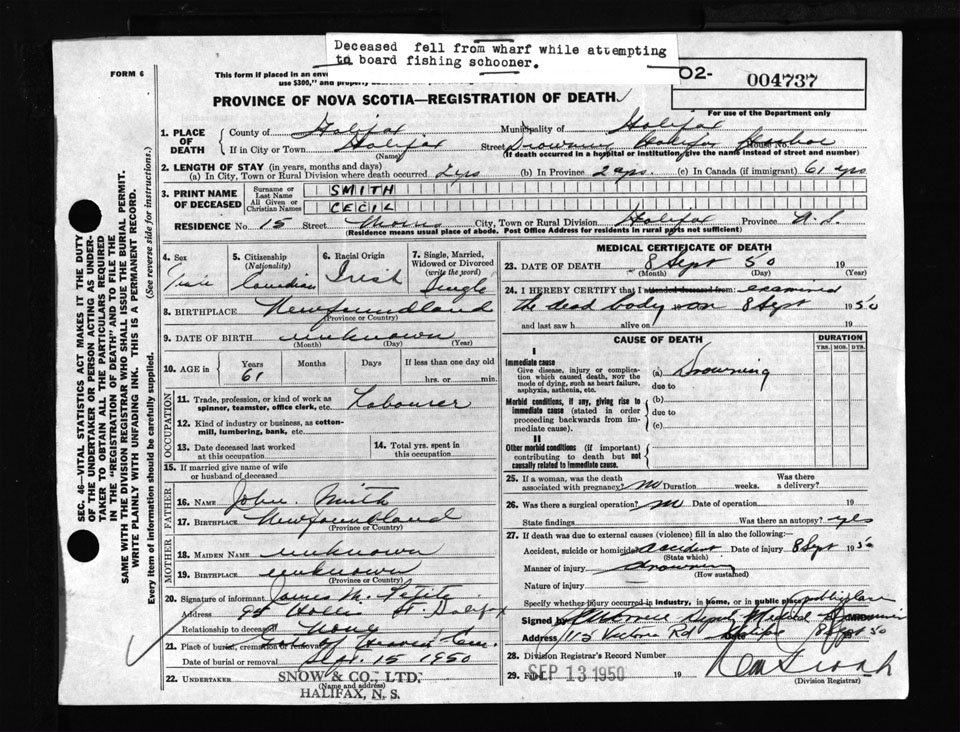 Deceased fell from wharf while attempting
to board fishing schooner.
FORM 6
This form if placed in an enve
use $300," and
O2-
004737
PROVINCE OF NOVA SCOTIA—REGISTRATION OF DEATH
For use of the Department only
1. PLACE OF DEATH
County of Halifax Municipality of Halifax
If in City or Town Halifax Street Drowning Halifax House No.
(Name) (If death occurred in a hospital or institution, give the name instead of street and number)
2. LENGTH OF STAY (in years, months and days)
(a) In City, Town or Rural Division where death occurred 2 yrs (b) In Province 2 yrs. (c) In Canada (if immigrant) 61 yrs
3. PRINT NAME OF DECEASED
Surname or Last Name SMITH
All Given or Christian Names CECIL
RESIDENCE No. 15 Street City, Town or Rural Division Halifax Province N.S.
(Residence means usual place of abode. Post Office Address for residents in rural parts not sufficient)
4. Sex
5. Citizenship (Nationality) Canadian
6. Racial Origin Irish
7. Single, Married, Widowed or Divorced (write the word) Single
8. BIRTHPLACE Newfoundland
(Province or Country)
9. DATE OF BIRTH unknown
(Month) (Day) (Year)
10. AGE in Years 61 Months Days If less than one day old
hrs. or min.
OCCUPATION
11. Trade, profession, or kind of work as spinner, teamster, office clerk, etc. Labourer
12. Kind of industry or business, as cotton-mill, lumbering, bank, etc.
13. Date deceased last worked at this occupation
14. Total yrs. spent in this occupation
15. If married give name of wife or husband of deceased
FATHER
16. NAME John Smith
17. BIRTHPLACE Newfoundland
(Province or Country)
MOTHER
18. MAIDEN NAME unknown
19. BIRTHPLACE unknown
(Province or Country)
20. Signature of informant James M.
Address Hollis St Halifax
Relationship to deceased None
21. Place of burial, cremation or removal
Date of burial or removal Sept. 15 1950
22. UNDERTAKER SNOW & CO., LTD.
(Name and address)
HALIFAX, N. S.
MEDICAL CERTIFICATE OF DEATH
23. DATE OF DEATH 8 Sept 50 19
(Month) (Day) (Year)
24. I HEREBY CERTIFY that I attended deceased from: examined
the dead body on 8 Sept 1950
and last saw h alive on 19
CAUSE OF DEATH
DURATION
YRS. MOS. DYS.
I
Immediate cause
Give disease, injury or complication which caused death, NOT the mode of dying, such as heart failure, asphyxia, asthenia, etc.
(a) Drowning
due to
Morbid conditions, if any, giving rise to immediate cause (stated in order proceeding backwards from immediate cause).
(b)
due to
(c)
II
Other morbid conditions (if important) contributing to death but not causally related to immediate cause.
25. If a woman, was the death associated with pregnancy? Duration weeks. Was there a delivery?
26. Was there a surgical operation? Date of operation 19
State findings Was there an autopsy? yes
27. If death was due to external causes (violence) fill in also the following:—
Accident, suicide or homicide accident Date of injury 8 Sept 1950
(State which)
Manner of injury drowning
(How sustained)
Nature of injury
Specify whether injury occurred in industry, in home, or in public place public place
Signed by Deputy Medical
Address 112 Victoria Rd Halifax 8 Sept 50
28. Division Registrar's Record Number
29. Filed SEP 13 1950 19
(Division Registrar)
SEC. 46—VITAL STATISTICS ACT MAKES IT THE DUTY
OF THE UNDERTAKER OR PERSON ACTING AS UNDER-
TAKER TO OBTAIN ALL THE PARTICULARS REQUIRED
IN THE "REGISTRATION OF DEATH" AND TO FILE THE
SAME WITH THE DIVISION REGISTRAR WHO SHALL ISSUE THE BURIAL PERMIT.
WRITE PLAINLY WITH UNFADING INK. THIS IS A PERMANENT RECORD.
Every item of information should be carefully supplied. (See reverse side for instructions.)